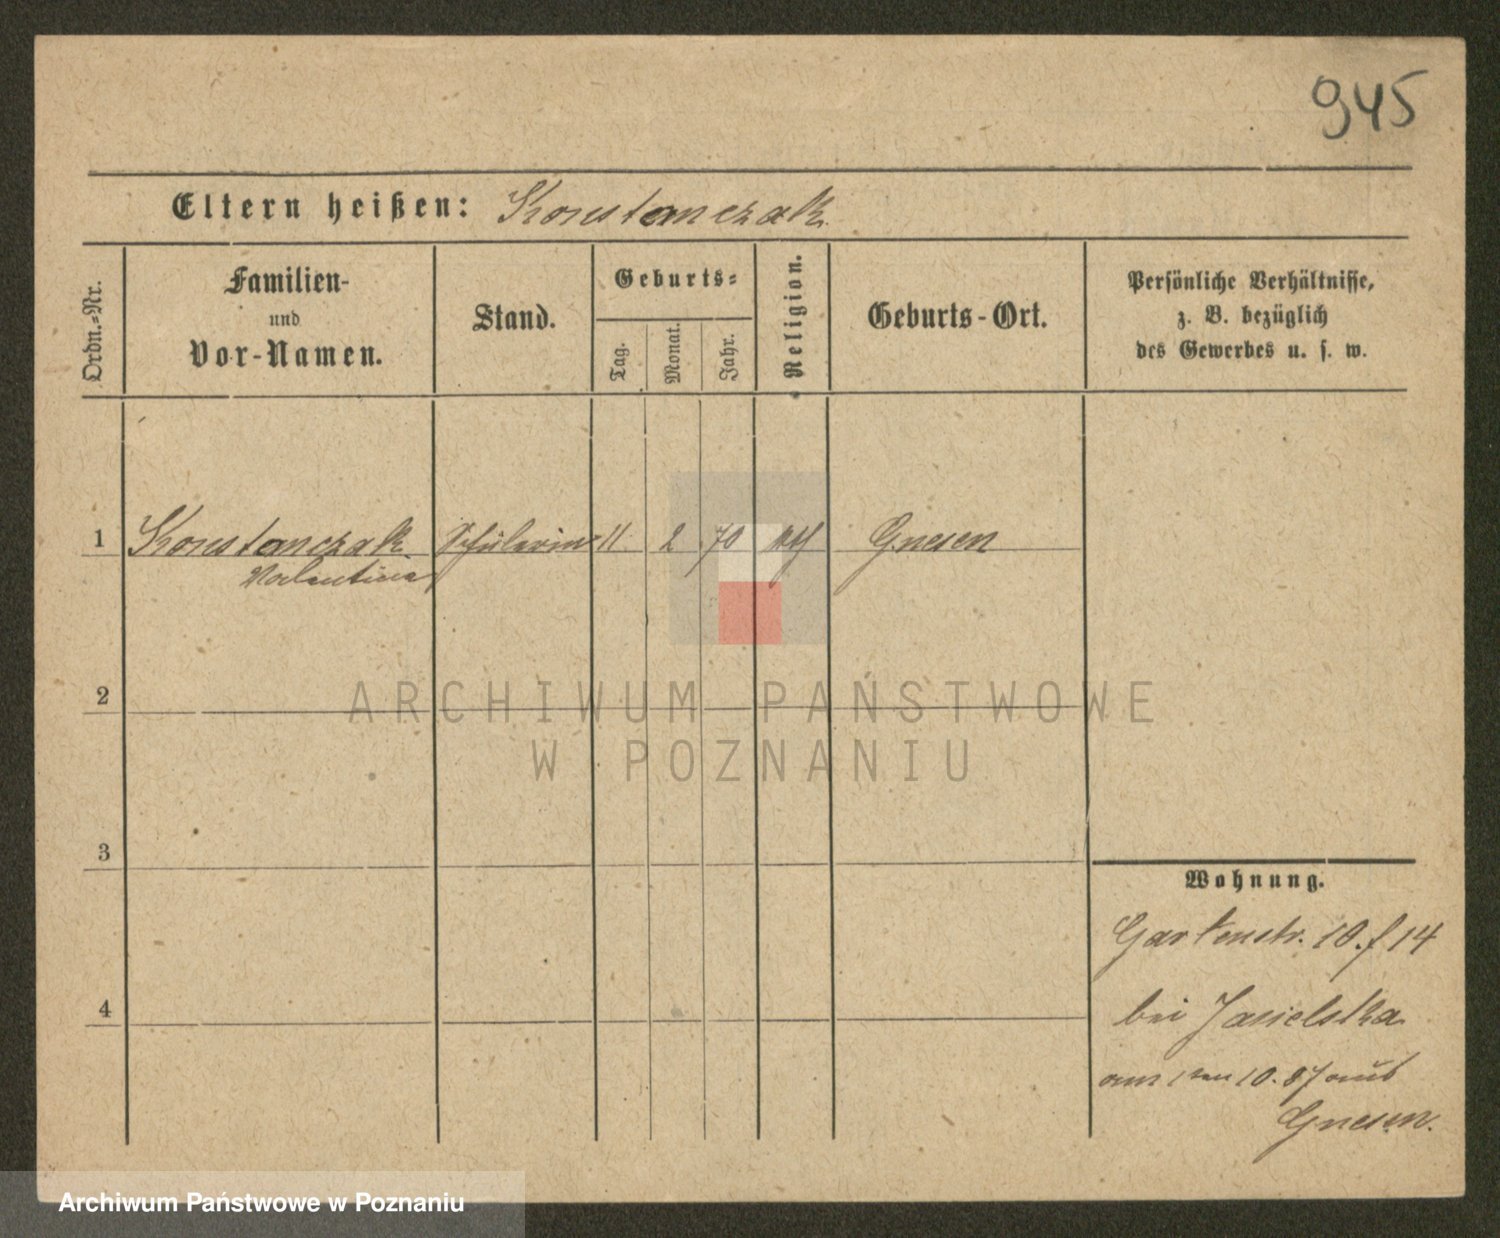 945
Eltern heißen: Konstanczak
Ordn.-Nr.
Familien-
und
Vor-Namen.
Stand.
Geburts-
Tag.
Monat.
Jahr.
Religion.
Geburts-Ort.
Persönliche Verhältnisse,
z. B. bezüglich
des Gewerbes u. s. w.
1 Konstanczak Schülerin 11 2 70 Gnesen
Valentina
2
ARCHIWUM PAŃSTWOWE
W POZNANIU
3
Wohnung.
Gartenstr. 10. 14
4
bei Jasielska
am 1 ten 10. 87 aus
Gnesen.
Archiwum Państwowe w Poznaniu